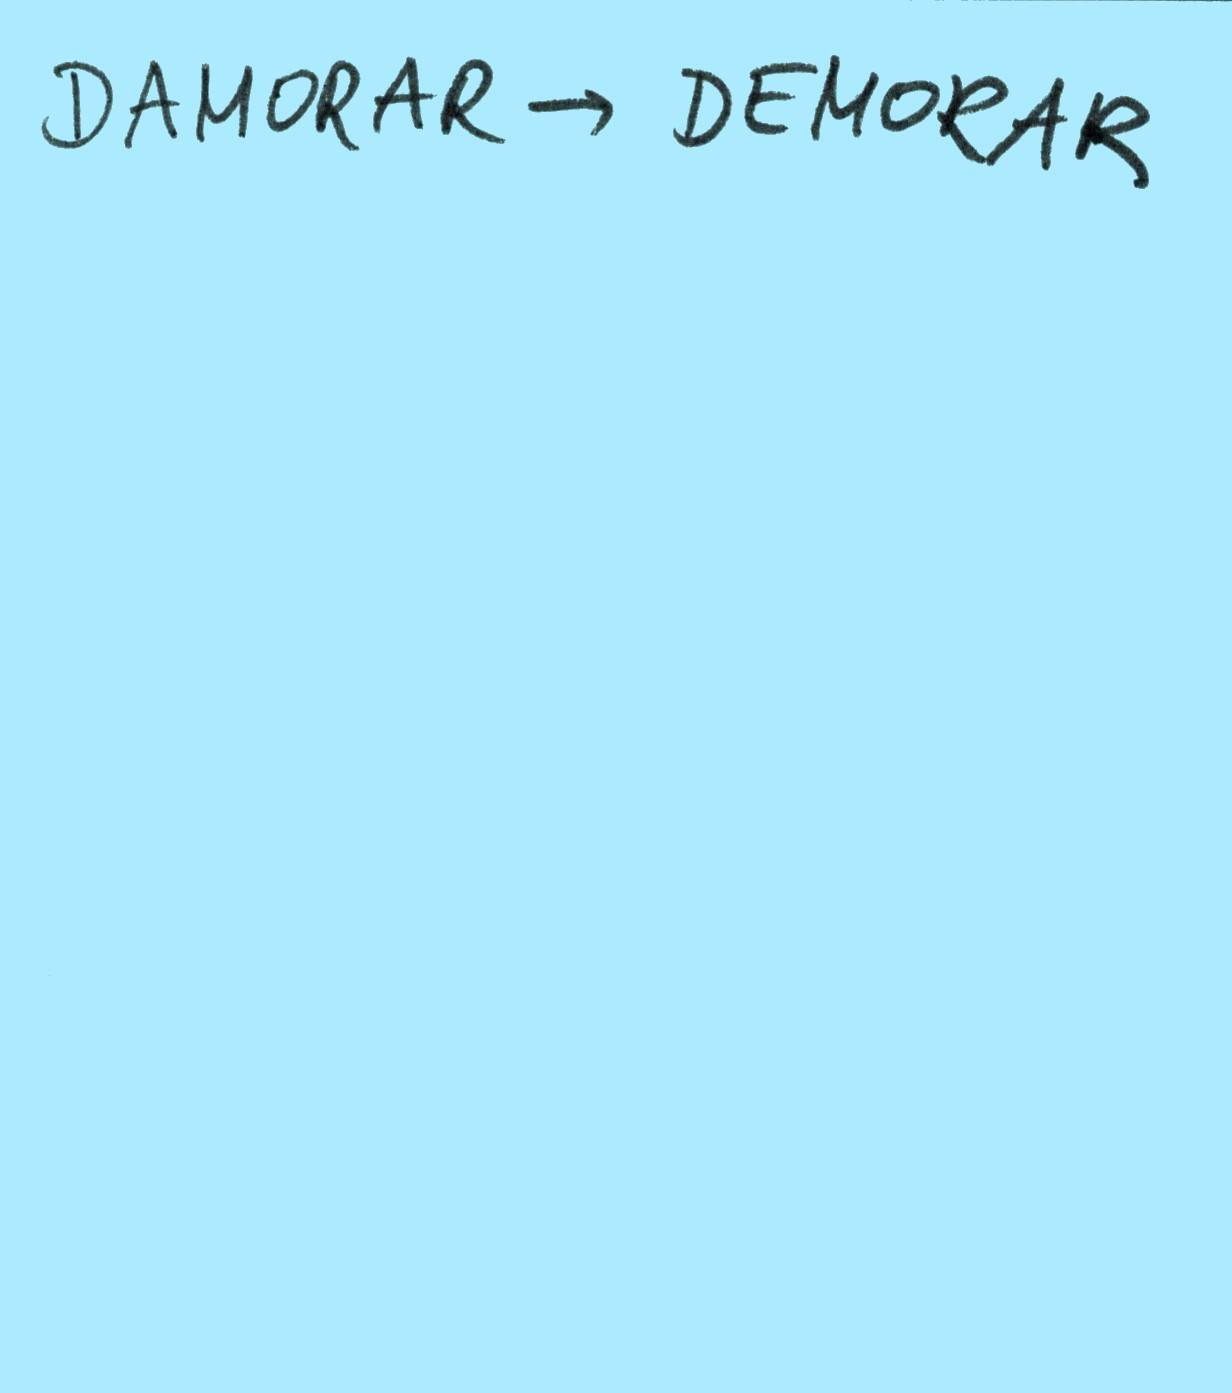 DAMORAR → DEMORAR